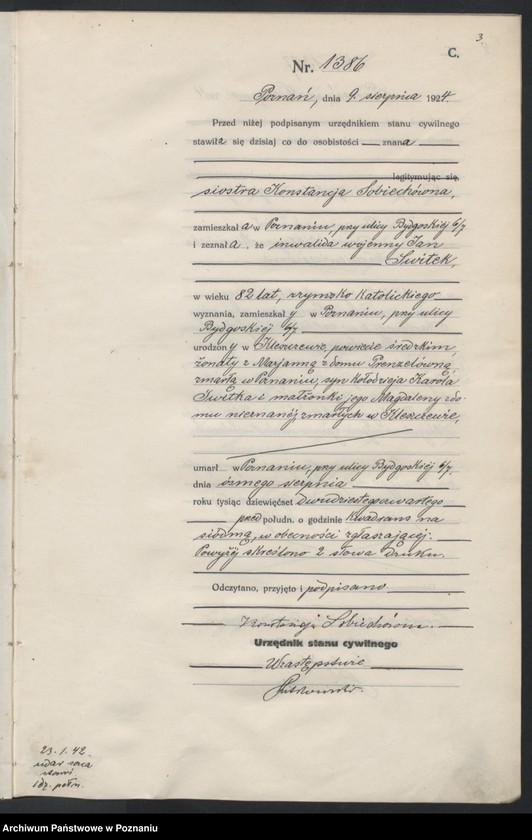 3.
C.
Nr. 1386
Poznań, dnia 9. sierpnia 1924.
Przed niżej podpisanym urzędnikiem stanu cywilnego
stawiła się dzisiaj co do osobistości — znana
legitymując się,
siostra Konstancja Sobiechówna,
zamieszkała w Poznaniu, przy ulicy Bydgoskiej 6/7
i zeznała, że inwalida wojenny Jan
Switek,
w wieku 82 lat, rzymsko katolickiego
wyznania, zamieszkały w Poznaniu, przy ulicy
Bydgoskiej 6/7
urodzony w Kleszczewie, powiecie średzkim,
żonaty z Marjanną z domu Prenzelówną
zmarłą w Poznaniu, syn kołodzieja Karola
Switka i małżonki jego Magdaleny z do-
mu nieznanéj zmarłych w Kleszczewie,
umarł w Poznaniu, przy ulicy Bydgoskiej 6/7
dnia ósmego sierpnia
roku tysiąc dziewięćset dwudziestegoczwartego
przed połudn. o godzinie kwadrans na
siódmą, w obecności zgłaszającéj.
Powyżej skreślono 2 słowa druku.
Odczytano, przyjęto i podpisano.
Konstancja Sobiechówna.
Urzędnik stanu cywilnego
W zastępstwie
23.1.42
Archiwum Państwowe w Poznaniu